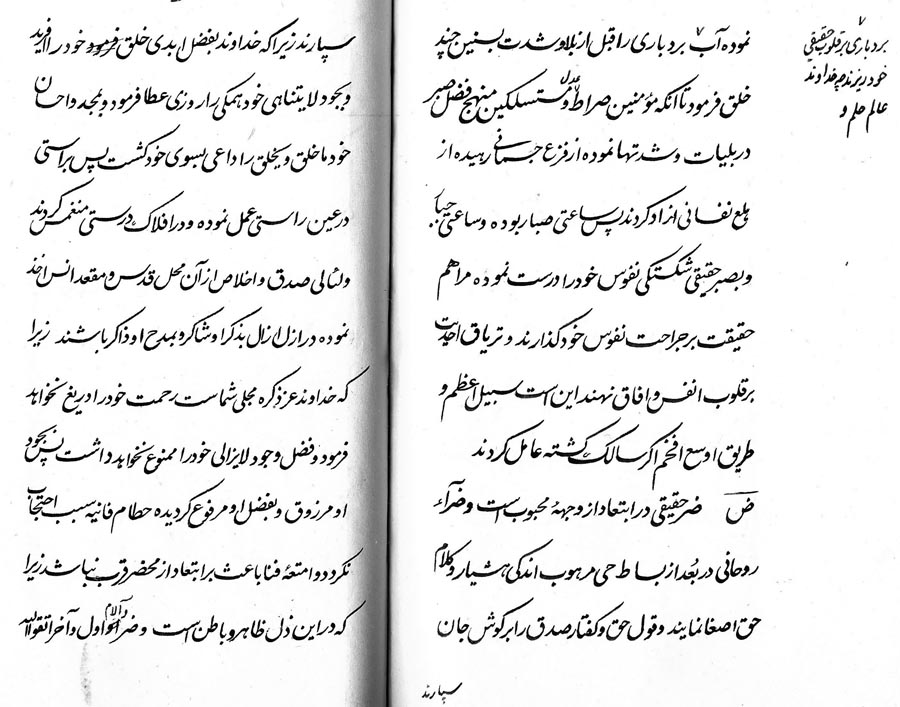 نموده آب بردباری را قبل از بلا و شدت بسنین چند
خلق فرمود تا آنکه مؤمنین صراط عدل و متمسکین منهج فضل صبر
در بلیات و شدتها نموده از فزع جسمانی رهیده از
هلع نفسانی ازاد کردند پس ساعتی صبار بوده و ساعتی
و بصبر حقیقی شکستکی نفوس خود را درست نموده مراهم
حقیقت بر جراحت نفوس خود کذارند و تریاق احدیت
بر قلوب انفس و افاق نهند این است سبیل اعظم و
طریق اوسع افخم اکر سالک کشته عامل کردند
ض ضر حقیقی در ابتعاد از وجههٔ محبوب است و ضرآء
روحانی در بُعد از بساط حی مرهوب اندکی هشیار و کلام
حق اصغا نمایند و قول حق و کفتار صدق را بر کوش جان
سپارند
بردباری بر قلوب حقیقی
خود برند چه خداوند
عالم حلم و
سپارند زیرا که خداوند بفضل ابدی خلق فرمود خود را افرید
و بجود لا یتناهی خود همکی را روزی عطا فرمود و بمجد و احسان
خود ما خلق و یخلق را داعی بسوی خود کشت پس براستی
در عین راستی عمل نموده و در افلاک درستی منغمس کردند
و لئالی صدق و اخلاص از آن محل قدس و مقعد انس اخذ
نموده در ازل ازال بذکر او شاکر و بمدح او ذاکر باشند زیرا
که خداوند عز ذکره مجلی شماست رحمت خود را دریغ نخواهد
فرمود و فضل وجود لا یزالی خود را ممنوع نخواهد داشت پس بجود
او مرزوق و بفضل او مرفوع کردیده حطام فانیه سبب احتجاب
نکردد و امتعهٔ فنا باعث بر ابتعاد از محضر قرب نباشد زیرا
که در این ذل ظاهر و باطن است و ضر و آلام اول و آخر اتقوا الله